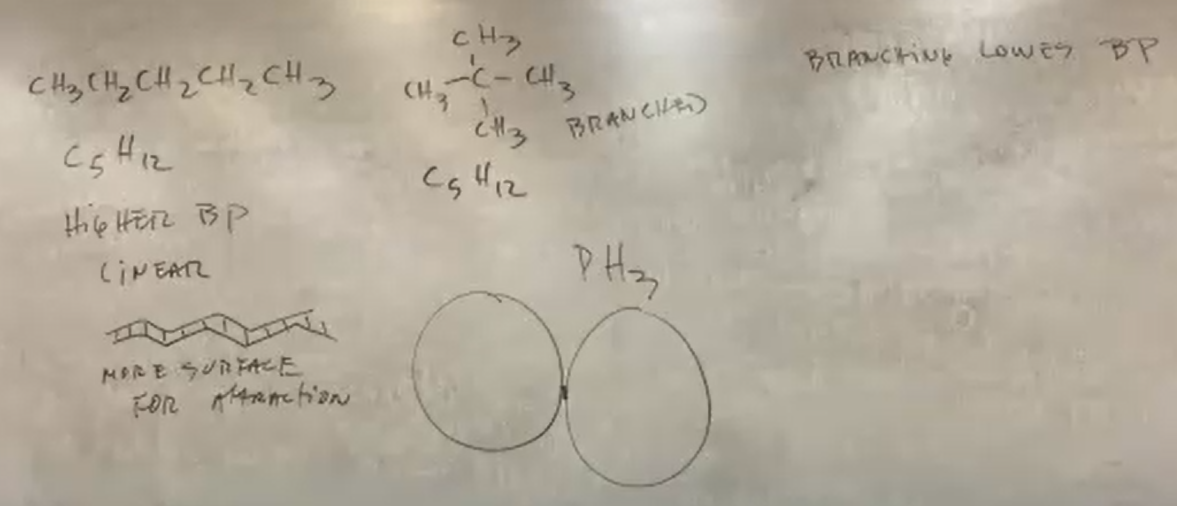 CH3CH2CH2CH2CH3
C5H12
HIGHER BP
LINEAR
MORE SURFACE
FOR ATTRACTION
CH3
CH3-C-CH3
CH3
BRANCHED
C5H12
PH3
BRANCHING LOWES BP